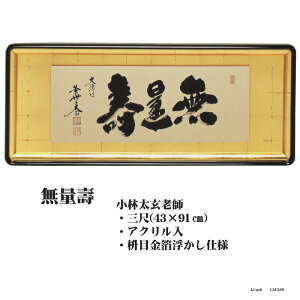 無量壽
無量壽
小林太玄老師
・三尺(43×91㎝)
・アクリル入
・枡目金箔浮かし仕様